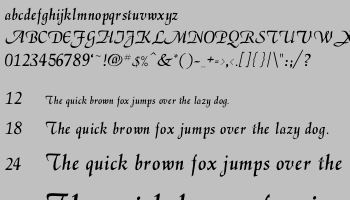 abcdefghijklmnopqrstuvwxyz
ABCDEFGHIJKLMNOPQRSTUVWX
0123456789'~!@#$%^&*()-_+=>,<.[]{}|\":;/?
12 The quick brown fox jumps over the lazy dog.
18 The quick brown fox jumps over the lazy dog.
24 The quick brown fox jumps over the